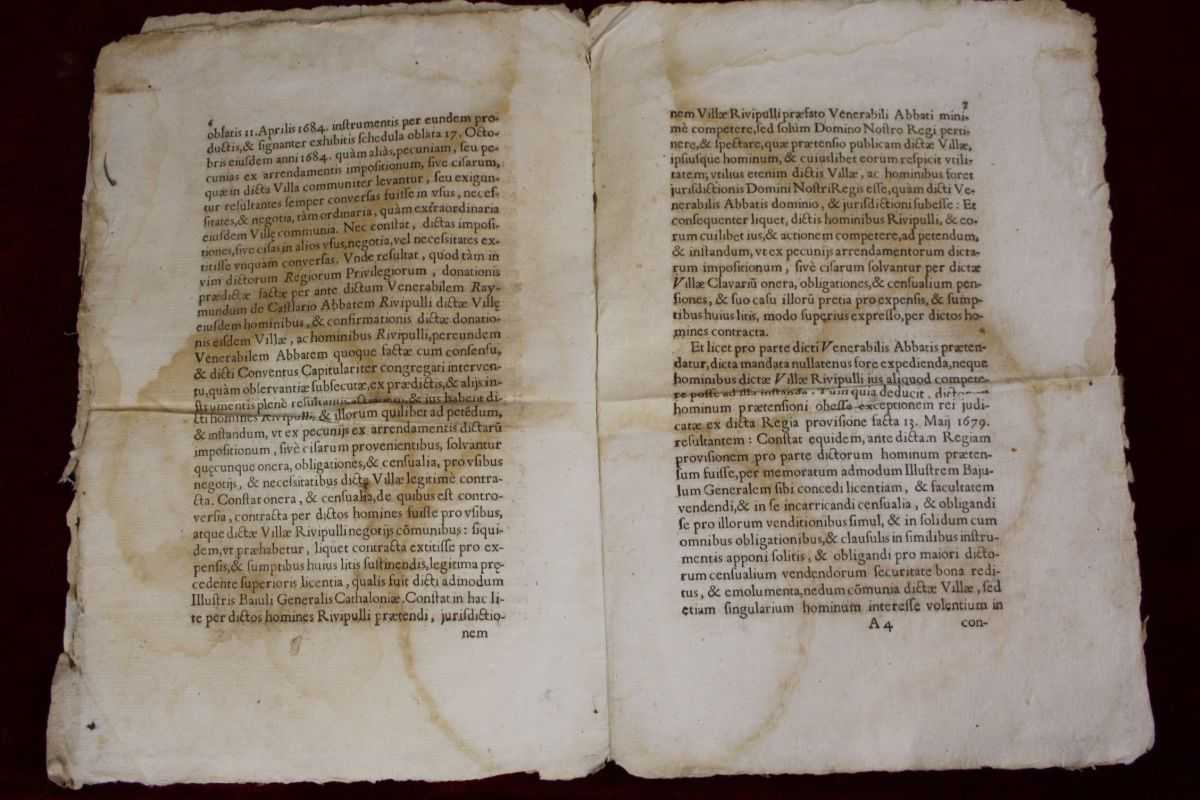 6
oblatis 11. Aprilis 1684. instrumentis per eundem pro-
ductis, & signanter exhibitis schedula oblata 17. Octo-
bris eiusdem anni 1684. quàm aliàs, pecuniam, seu pe-
cunias ex arrendamentis impositionum, sive cisarum,
quæ in dicta Villa communiter levantur, seu exigun-
tur resultantes semper conversas fuisse in vsus, neces-
sitates, & negotia, tàm ordinaria, quàm extraordinaria
eiusdem Villę communia. Nec constat, dictas imposi-
tiones, sive cisas in alios vsus, negotia, vel necessitates ex-
titisse vnquam conversas. Vnde resultat, quod tàm in
vim dictorum Regiorum Privilegiorum, donationis
prædictæ factæ per ante dictum Venerabilem Ray-
mundum de Castlario Abbatem Rivipulli dictæ Villę
eiusdem hominibus, & confirmationis dictæ donatio-
nis eisdem Villæ, ac hominibus Rivipulli, per eundem
Venerabilem Abbatem quoque factæ cum consensu,
& dicti Conventus Capitulariter congregati interven-
tu, quàm observantiæ subsecutæ, ex prædictis, & alijs in-
strumentis plenè resultantis & ius habent di-
cti homines Rivipulli, & illorum quilibet ad petēdum,
& instandum, vt ex pecunijs ex arrendamentis dictarū
impositionum, sivè cisarum provenientibus, solvantur
quęcunque onera, obligationes, & censualia, pro vsibus
negotijs, & necessitatibus dictę Villæ legitimè contra-
cta. Constat onera, & censualia, de quibus est contro-
versia, contracta per dictos homines fuisse pro vsibus,
atque dictæ Villæ Rivipulli negotijs cōmunibus: siqui-
dem, vt præhabetur, liquet contracta extitisse pro ex-
pensis, & sumptibus huius litis sustinendis, legitima prę-
cedente superioris licentia, qualis fuit dicti admodum
Illustris Baiuli Generalis Cathaloniæ. Constat in hac li-
te per dictos homines Rivipulli prætendi, jurisdictio-
nem
7
nem Villæ Rivipulli præfato Venerabili Abbati mini-
mè competere, sed solùm Domino Nostro Regi perti-
nere, & spectare, quæ prætensio publicam dictæ Villæ,
ipsiusque hominum, & cuiuslibet eorum respicit vtili-
tatem; vtilius etenim dictis Villæ, ac hominibus foret
jurisdictionis Domini Nostri Regis esse, quàm dicti Ve-
nerabilis Abbatis dominio, & jurisdictioni subesse: Et
consequenter liquet, dictis hominibus Rivipulli, & eo-
rum cuilibet ius, & actionem competere, ad petendum,
& instandum, vt ex pecunijs arrendamentorum dicta-
rum impositionum, sivè cisarum solvantur per dictæ
Villæ Clavariū onera, obligationes, & censualium pen-
siones, & suo casu illorū pretia pro expensis, & sump-
tibus huius litis, modo superius expresso, per dictos ho-
mines contracta.
Et licet pro parte dicti Venerabilis Abbatis præten-
datur, dicta mandata nullatenus fore expedienda, neque
hominibus dictæ Villæ Rivipulli jus aliquod compete-
re posse ad illa instanda: Tum quia deducit, dictorum
hominum prætensioni obesse exceptionem rei judi-
catæ ex dicta Regia provisione facta 13. Maij 1679.
resultantem: Constat equidem, ante dictam Regiam
provisionem pro parte dictorum hominum præten-
sum fuisse, per memoratum admodum Illustrem Baju-
lum Generalem sibi concedi licentiam, & facultatem
vendendi, & in se incarricandi censualia, & obligandi
se pro illorum venditionibus simul, & in solidum cum
omnibus obligationibus, & clausulis in similibus instru-
mentis apponi solitis, & obligandi pro maiori dicto-
rum censualium vendendorum securitate bona redi-
tus, & emolumenta, nedum cōmunia dictæ Villæ, sed
etiam singularium hominum interesse volentium in
A 4 con-